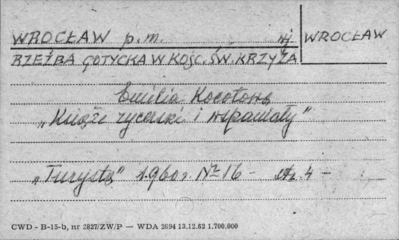 WROCŁAW p.m. wj WROCŁAW
RZEŹBA GOTYCKA W KOŚC. ŚW. KRZYŻA
Emilia Kocotowa
„Książę rycerski i wspaniały”
„Turysta” 1960 r. Nr 16 - str. 4 -
CWD - B-15-b, nr 2827/ZW/P — WDA 2694 13.12.62 1.700.000